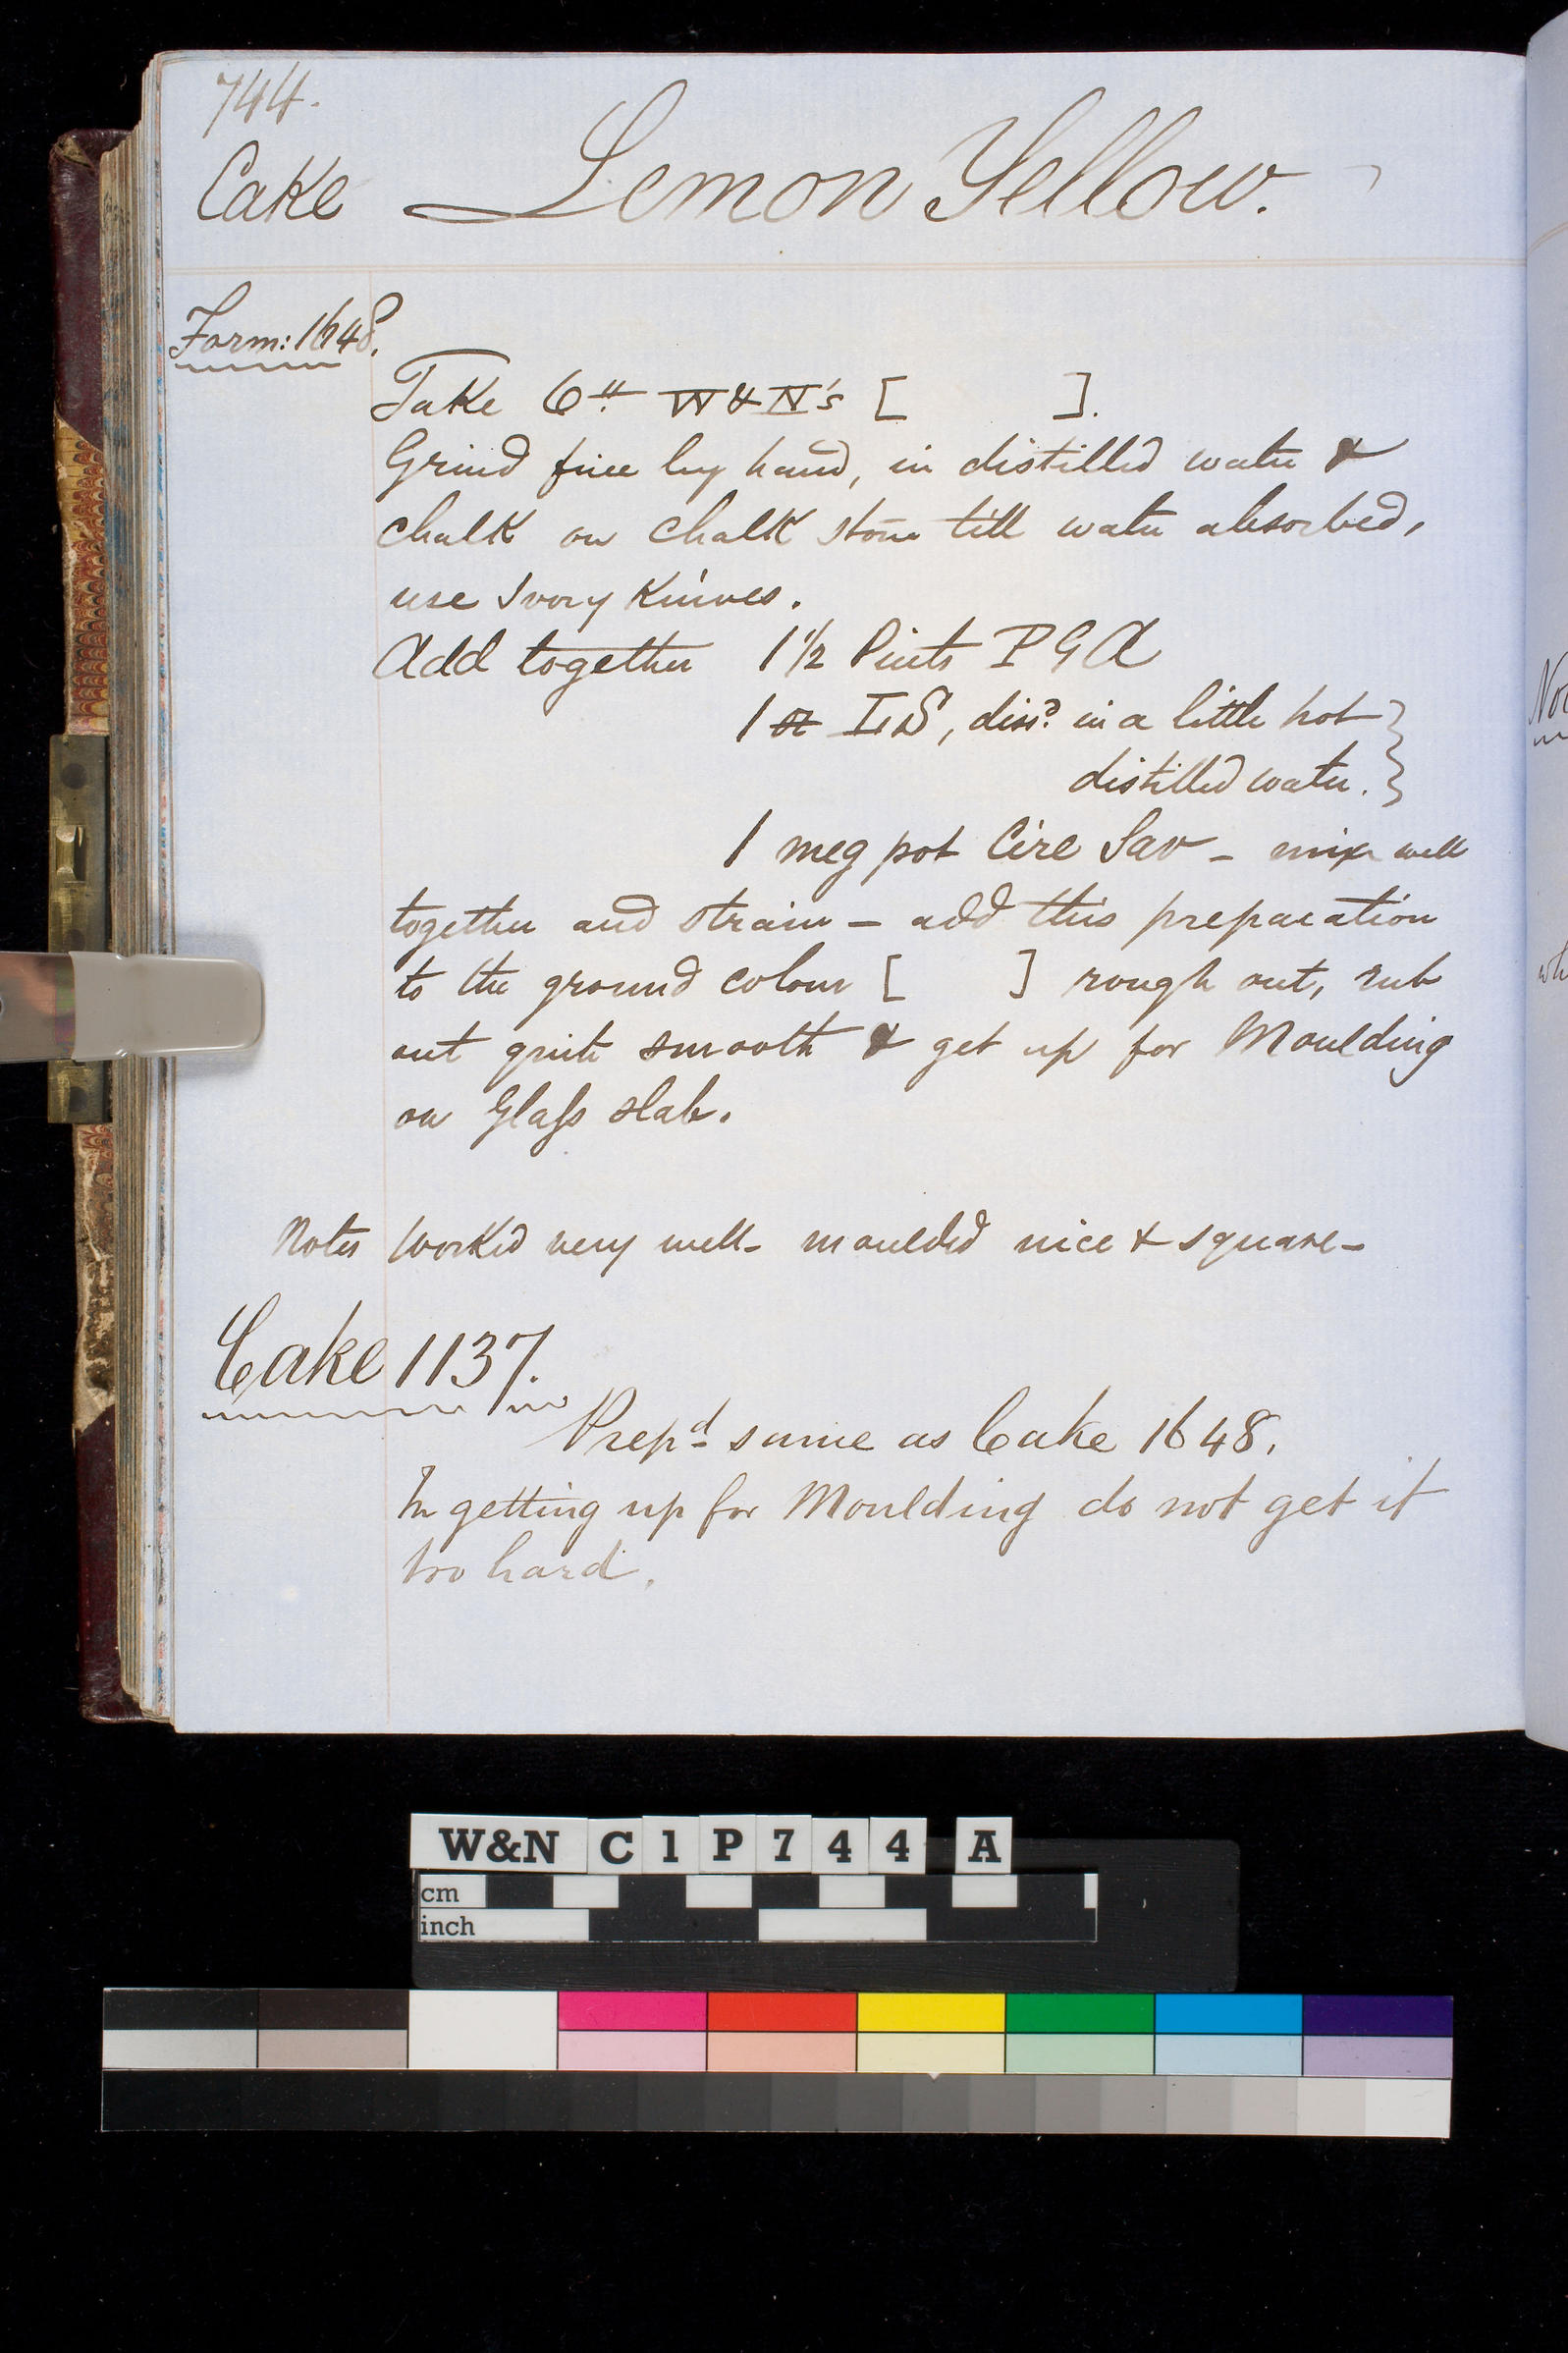 744.
Cake Lemon Yellow.
Form: 1648.
Take 6 lb W & N's [ ].
Grind fine by hand, in distilled water &
chalk on Chalk stone till water absorbed,
use Ivory Knives.
Add together 1 1/2 Pints P G A
1 oz LS, diss.d in a little hot
distilled water.
1 meg pot Cire Sav - mix well
together and strain - add this preparation
to the ground colour [ ] rough out, rub
out quite smooth & get up for Moulding
on Glass slab.
Notes Work'd very well - moulded nice & square -
Cake 1137.
Prepd same as Cake 1648.
In getting up for Moulding do not get it
too hard.
Not
wh
W&N C 1 P 7 4 4 A
cm
inch